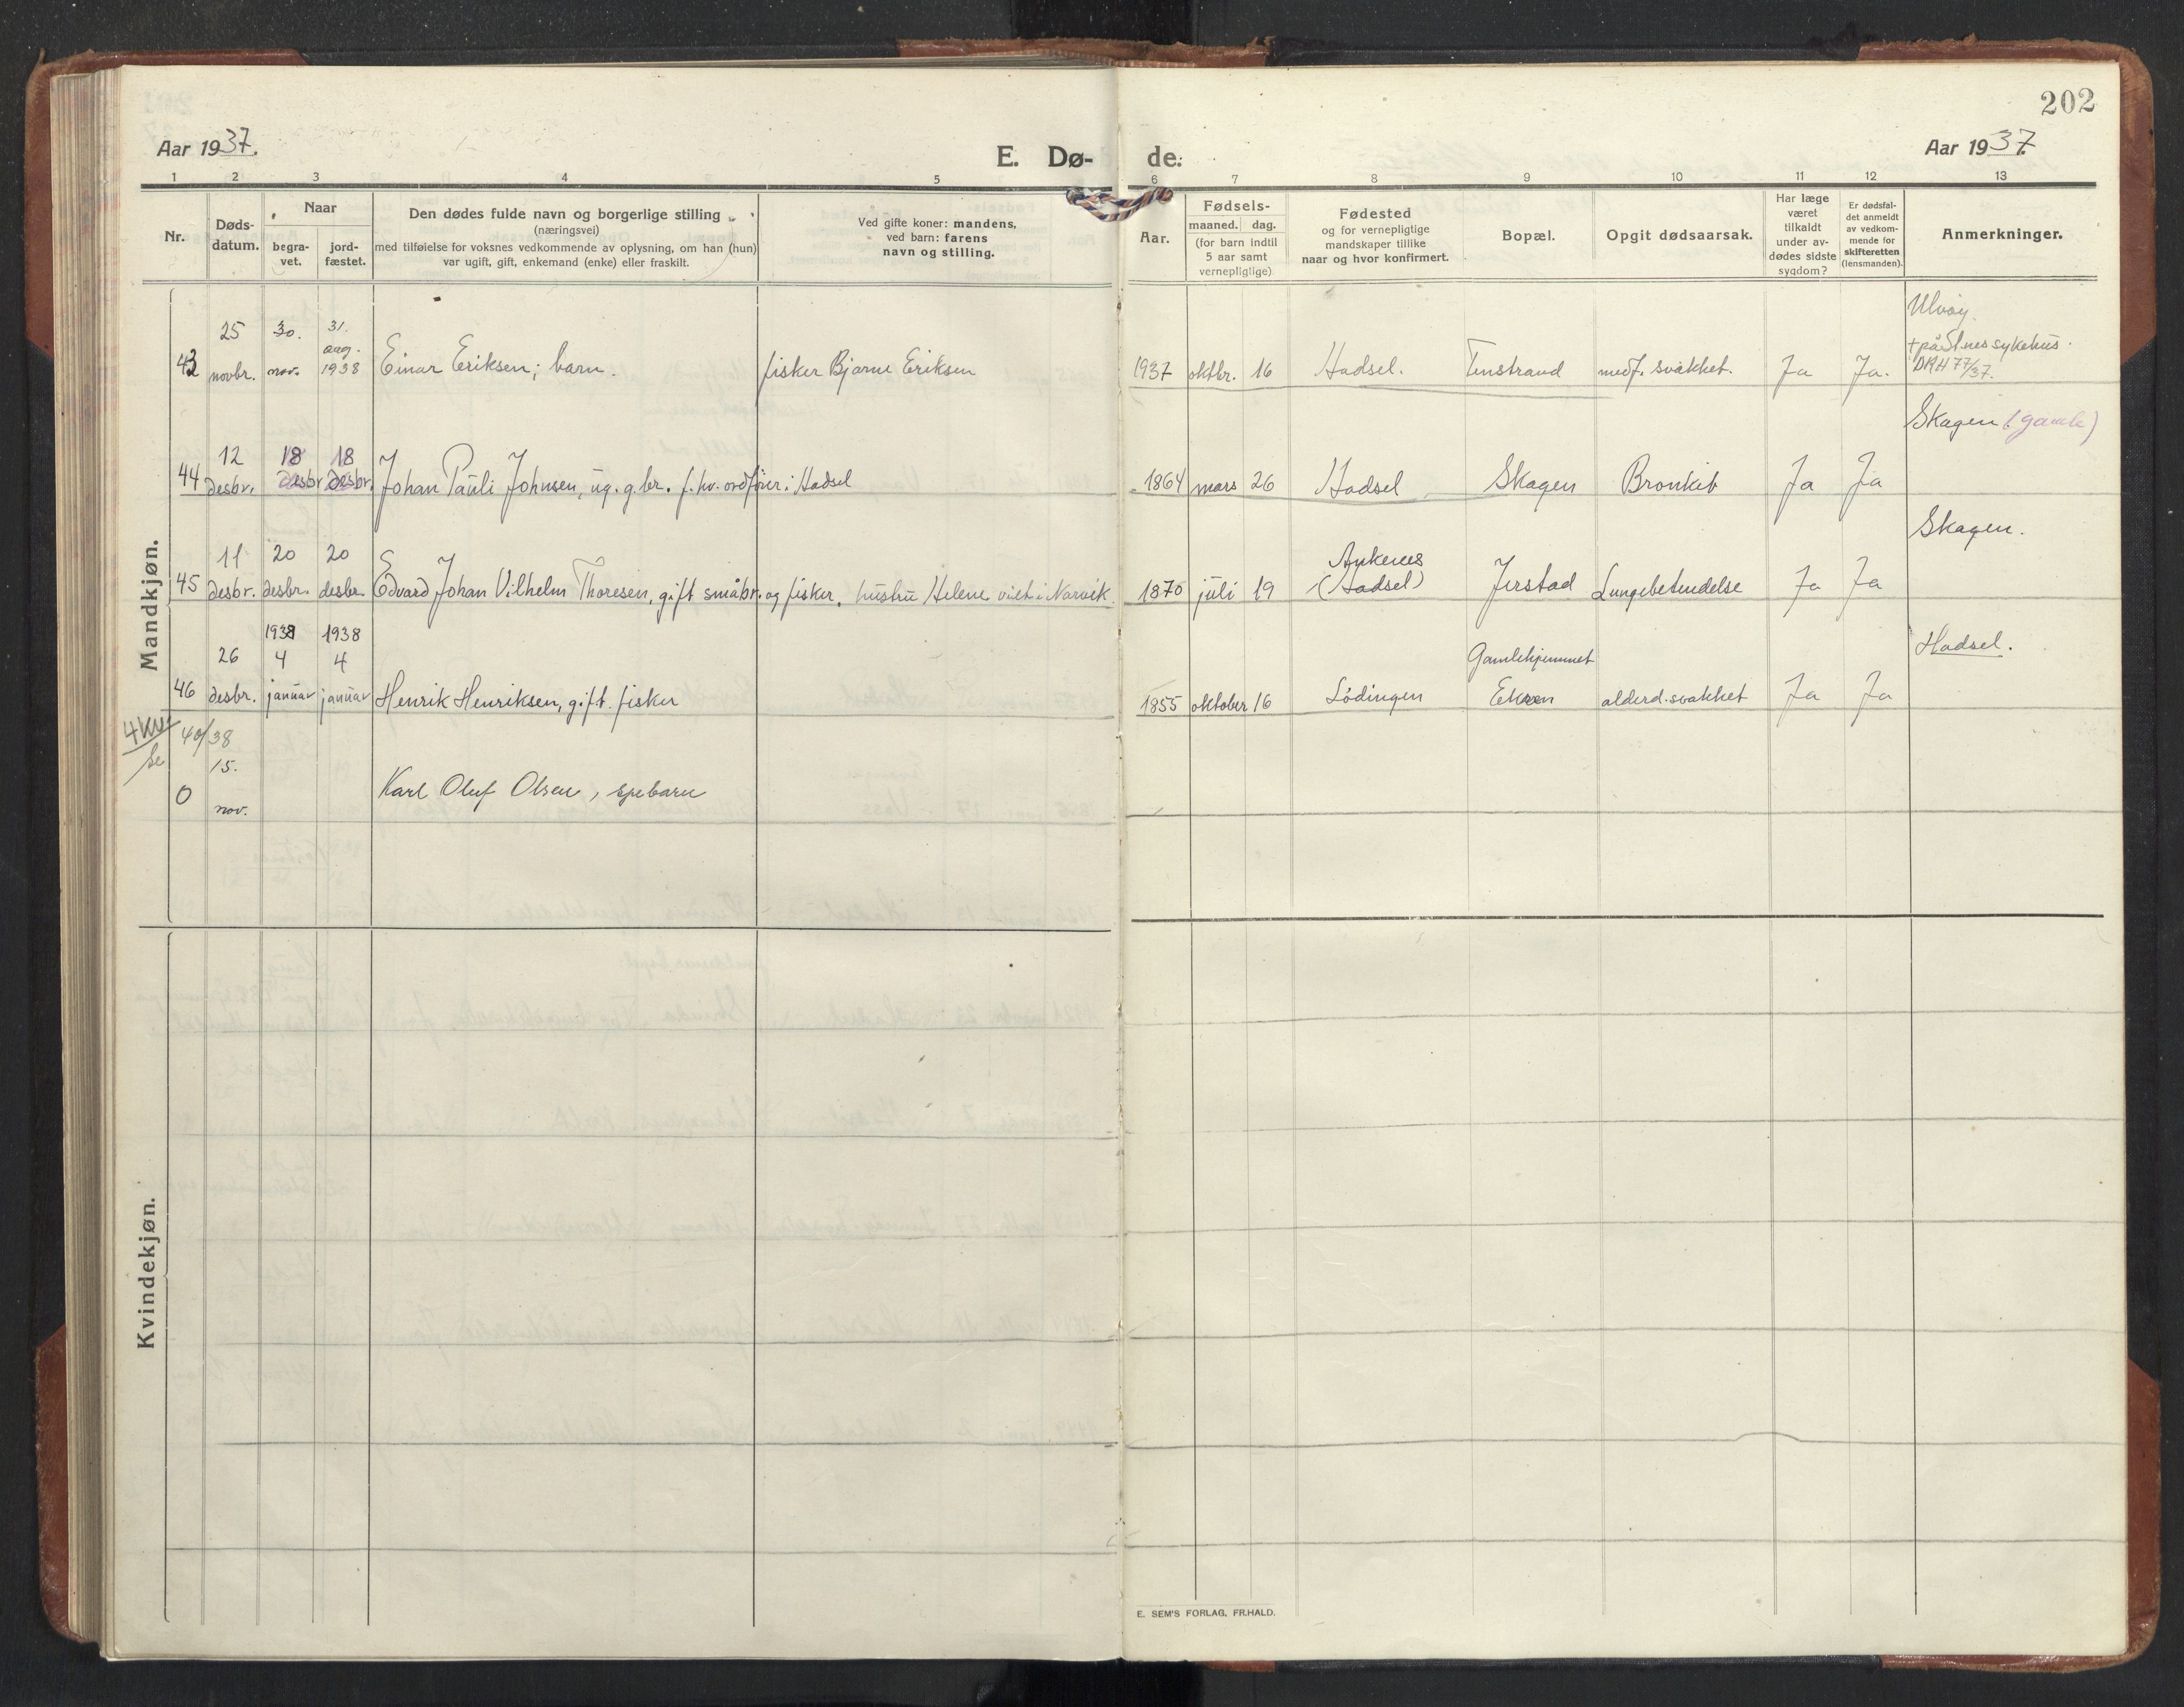 202
Aar 1937.
E. Dø-
de.
Aar 1937.
1 2 3 4 5 6 7 8 9 10 11 12 13
Nr.
Døds-
datum.
Naar
begra-
vet.
jord-
fæstet.
Den dødes fulde navn og borgerlige stilling
(næringsvei)
med tilføielse for voksnes vedkommende av oplysning, om han (hun)
var ugift, gift, enkemand (enke) eller fraskilt.
Ved gifte koner: mandens,
ved barn: farens
navn og stilling.
Aar.
Fødsels-
maaned. dag.
(for barn indtil
5 aar samt
vernepligtige)
Fødested
og for vernepligtige
mandskaper tillike
naar og hvor konfirmert.
Bopæl.
Opgit dødsaarsak.
Har læge
været
tilkaldt
under av-
dødes sidste
sygdom?
Er dødsfal-
det anmeldt
av vedkom-
mende for
skifteretten
(lensmanden).
Anmerkninger.
Mandkjøn.
Ulvøy.
25 30. 31.
aug.
+ på St.nes sykehus.
43 novbr. nov. 1938 Einar Eriksen; barn. fisker Bjarne Eriksen 1937 oktbr. 16 Hadsel. Tenstrand medf. svakhet. Ja Ja. DRH 77/37.
Skagen (gamle)
12 18 18
44 desbr. desbr desbr. Johan Pauli Johnsen, ug. g.br. f. hv. ordfører i Hadsel 1864 mars 26 Hadsel Skagen Bronkit Ja Ja
Skagen.
11 20 20 Ankenes
45 desbr. desbr. desbr. Edvard Johan Vilhelm Thoresen, gift småbr. og fisker. hustru Helene viet i Narvik. 1870 juli 19 (Hadsel) Jerstad Lungebetendelse Ja Ja
1938 1938
Hadsel.
26 4 4 Gamlehjemmet
46 desbr. januar januar Henrik Henriksen, gift. fisker 1855 oktober 16 Lødingen Ekren alderd. svakhet Ja Ja
40/38
15.
0 nov. Karl Oluf Olsen, spebarn
Kvindekjøn.
E. SEM'S FORLAG, FR.HALD.